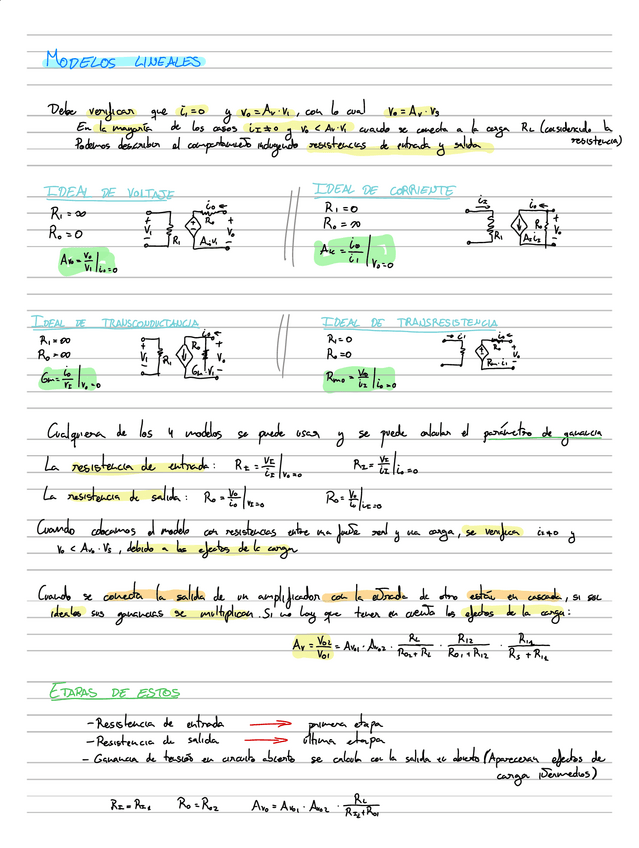 MODELOS LINEALES
Debe verificar que i₁=0 y v₀=Aᵥ·v₁, con lo cual v₀=Aᵥ·v₃
En la mayoría de los casos i_I≠0 y v₀<Aᵥ·v₁ cuando se conecta a la carga R_L (considerando la resistencia)
Podemos describir el comportamiento incluyendo resistencias de entrada y salida
IDEAL DE VOLTAJE
R₁=∞
R₀=0
Aᵥ₀=v₀/v₁|i₀=0
V₁ R₁ R₀ Aᵥv₁ i₀ V₀
IDEAL DE CORRIENTE
R₁=0
R₀=∞
i₀/i₁|v₀=0
i_I R₁ R₀ i₀ V₀
IDEAL DE TRANSCONDUCTANCIA
R₁=∞
R₀=∞
Gm=i₀/v_I|v₀=0
V₁ R₁ R₀ Gm·V₁ i₀ V₀
IDEAL DE TRANSRESISTENCIA
R₁=0
R₀=0
Rmo=v₀/i_I|i₀=0
i₁ R₀ Rm·i₁ i₀ V₀
Cualquiera de los 4 modelos se puede usar y se puede calcular el parámetro de ganancia
La resistencia de entrada: R_I=v_I/i_I|v₀=0 R_I=v_I/i_I|i₀=0
La resistencia de salida: R₀=v₀/i₀|v_I=0 R₀=v₀/i₀|i_I=0
Cuando colocamos el modelo con resistencias entre una fuente real y una carga, se verifica i₁≠0 y
v₀<Aᵥ₀·v_S, debido a los efectos de la carga
Cuando se conecta la salida de un amplificador con la entrada de otro están en cascada, si son
ideales sus ganancias se multiplican. Si no hay que tener en cuenta los efectos de la carga:
Aᵥ=V₀₂/V₀₁=Aᵥ₀₁·Aᵥ₀₂·R_L/(R₀₂+R_L)·R_I2/(R₀₁+R_I2)·R_I1/(R_S+R_I1)
ETAPAS DE ESTOS
-Resistencia de entrada → primera etapa
-Resistencia de salida → última etapa
-Ganancia de tensión en circuito abierto se calcula con la salida en abierto (Aparecerán efectos de
carga intermedios)
R_I=R_I1 R₀=R₀₂ Aᵥ₀=Aᵥ₀₁·Aᵥ₀₂·R_L/(R_I2+R₀₁)